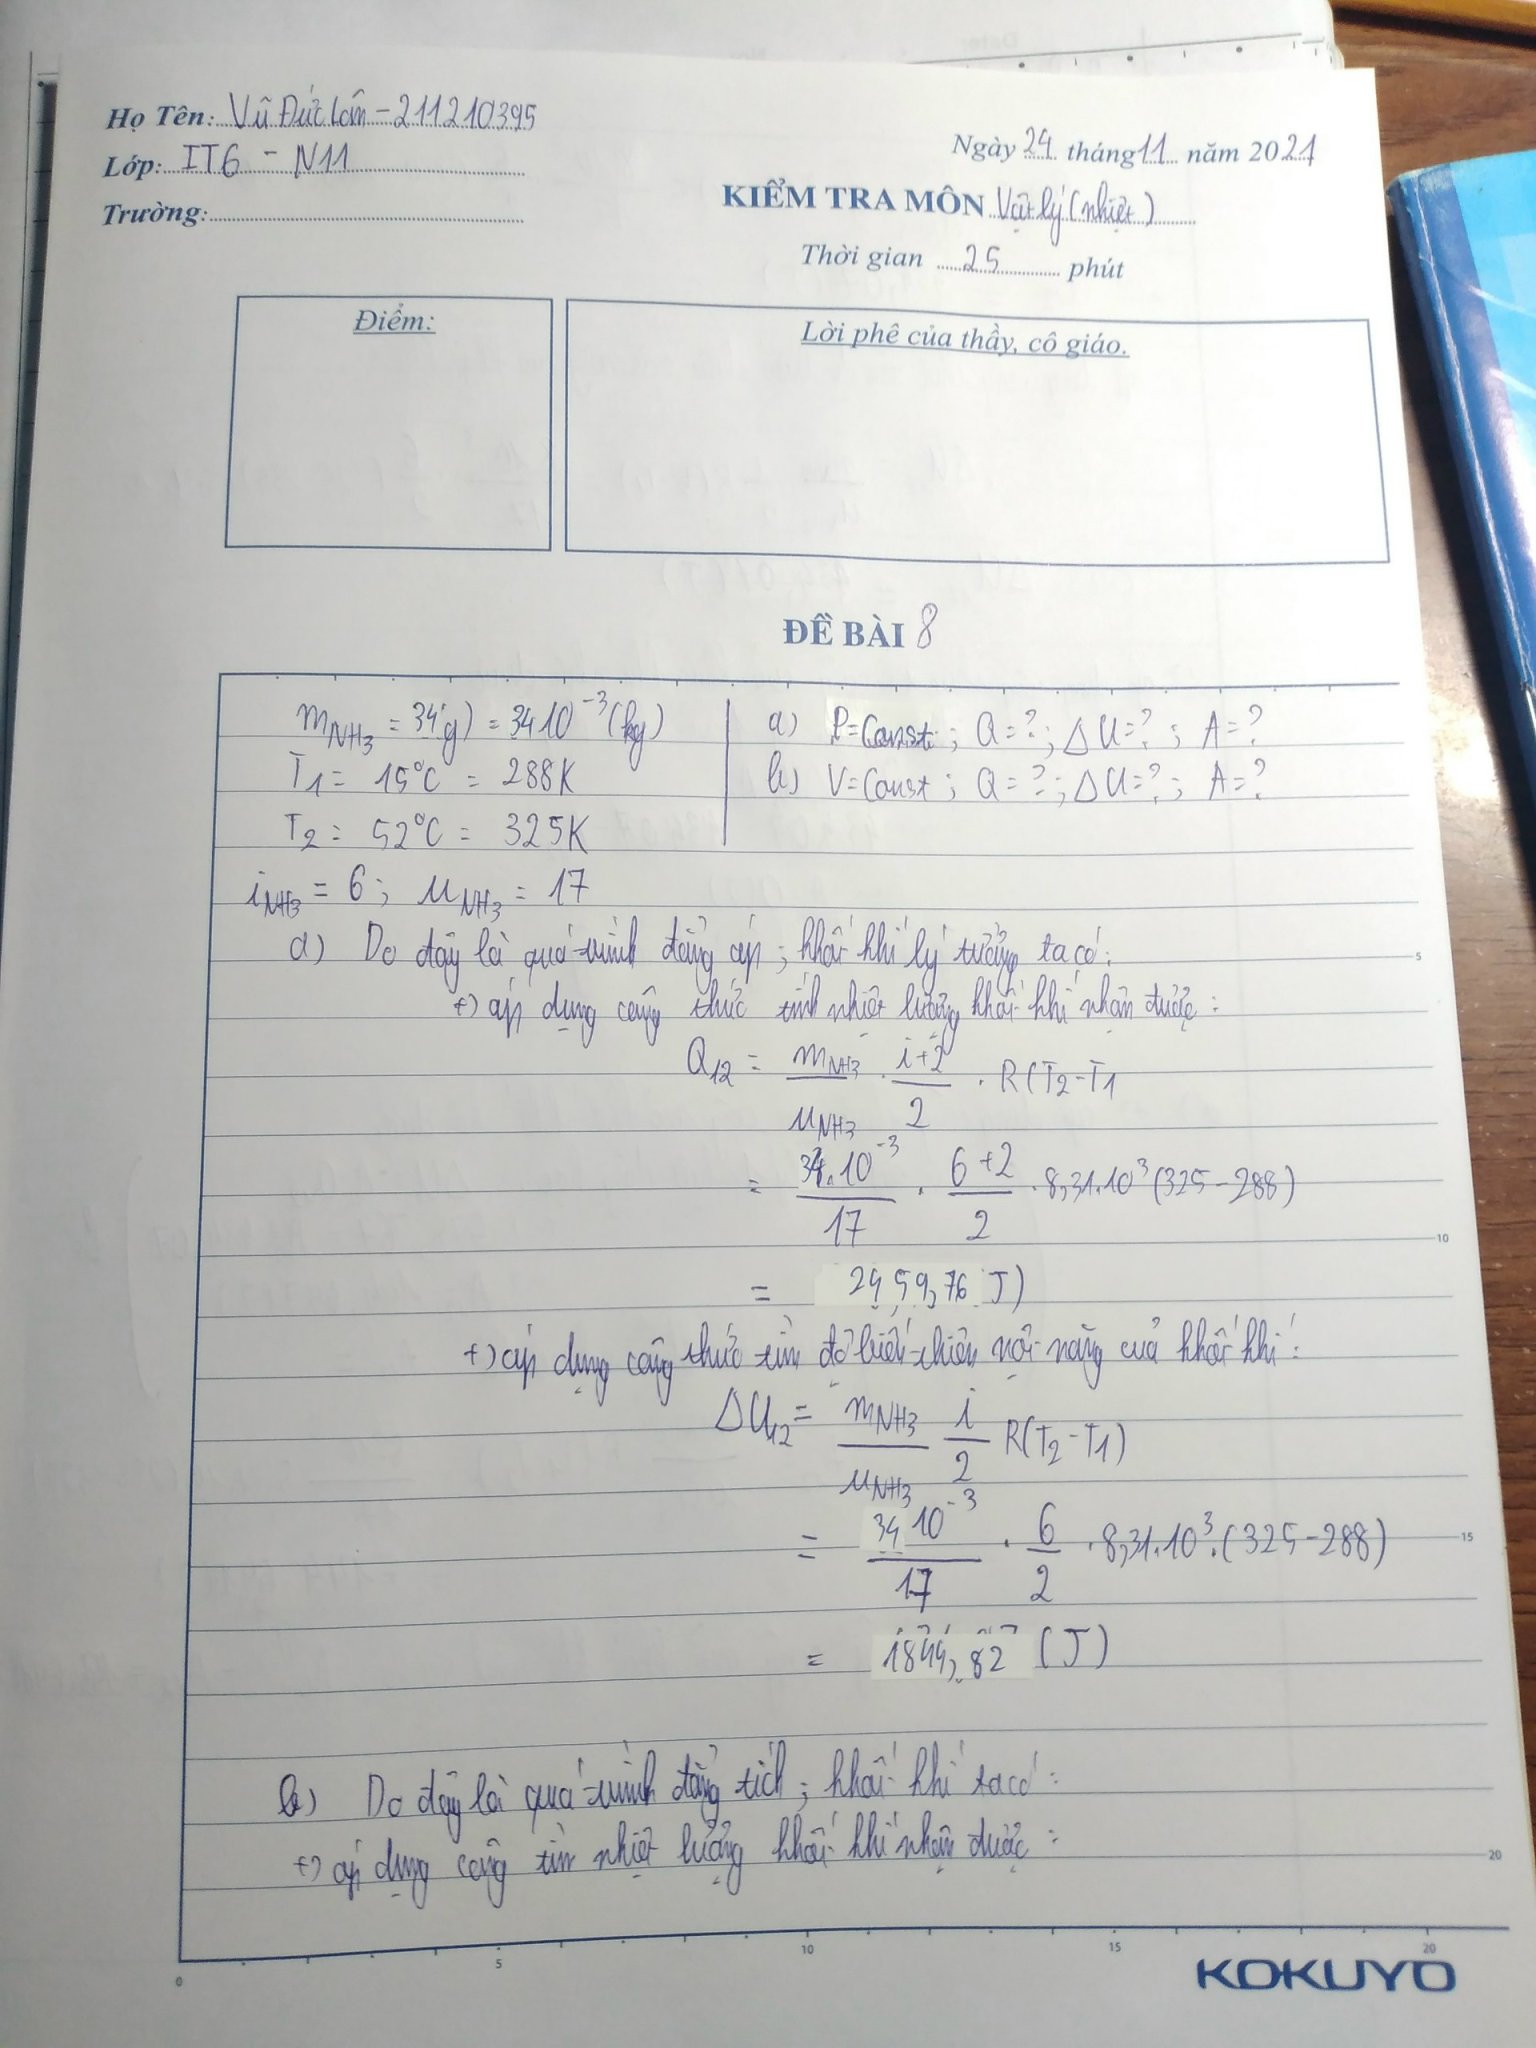 Họ Tên: Vũ Đức Lân - 211210395
Lớp: IT6 - N11
Trường:
Ngày 24 tháng 11 năm 2021
KIỂM TRA MÔN Vật lý (nhiệt)
Thời gian 25 phút
Điểm:
Lời phê của thầy, cô giáo.
ĐỀ BÀI 8
mNH3 = 34(g) = 34 10^-3 (kg)
T1 = 15°C = 288K
T2 = 52°C = 325K
iNH3 = 6; μNH3 = 17
a) P=Const; Q=?; ΔU=?; A=?
b) V=Const; Q=?; ΔU=?; A=?
a) Do đây là quá trình đẳng áp; khối khí lý tưởng ta có:
+) áp dụng công thức tính nhiệt lượng khối khí nhận được:
Q12 = mNH3/μNH3 . i+2/2 . R(T2-T1
= 34.10^-3/17 . 6+2/2 . 8,31.10^3 (325-288)
= 2459,76 J)
+) áp dụng công thức tìm độ biến thiên nội năng của khối khí:
ΔU12 = mNH3/μNH3 i/2 R(T2-T1)
= 34 10^-3/17 . 6/2 . 8,31.10^3.(325-288)
= 1844,82 (J)
b) Do đây là quá trình đẳng tích; khối khí ta có:
+) áp dụng công tìm nhiệt lượng khối khí nhận được:
5
10
15
20
0
5
10
15
20
KOKUYO